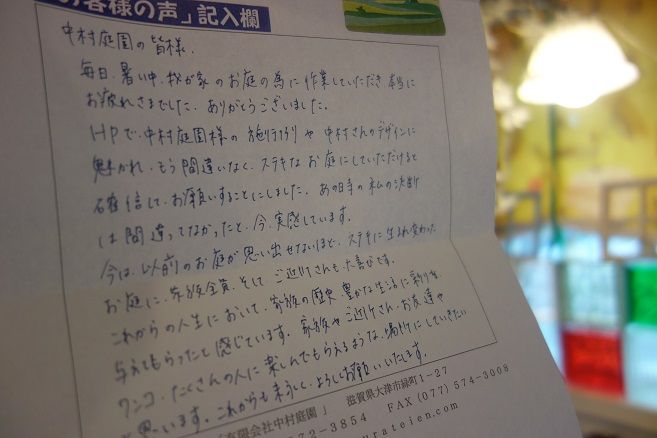 お客様の声」記入欄
中村庭園の皆様、
毎日、暑い中、我が家のお庭の為に作業していただき本当に
お疲れさまでした。ありがとうございました。
HPで、中村庭園様の施行例や中村さんのデザインに
魅かれ、もう間違いなく、ステキなお庭にしていただけると
確信して、お願いすることにしました。あの日の私の決断
は間違ってなかったと、今、実感しています。
今は、以前のお庭が思い出せないほど、ステキに生まれ変わった
お庭に、家族全員、そして、ご近所さんも大喜びです。
これからの人生において、家族の歴史、豊かな生活に彩りを
与えてもらったと感じています。家族やご近所さん、お友達や
ワンコ、たくさんの人に楽しんでもらえるような、場所にしていきたい
思います。これからも末永く、よろしくお願いいたします。
有限会社中村庭園」 滋賀県大津市緑町1-27
72-3854 FAX (077) 574-3008
urateien.com